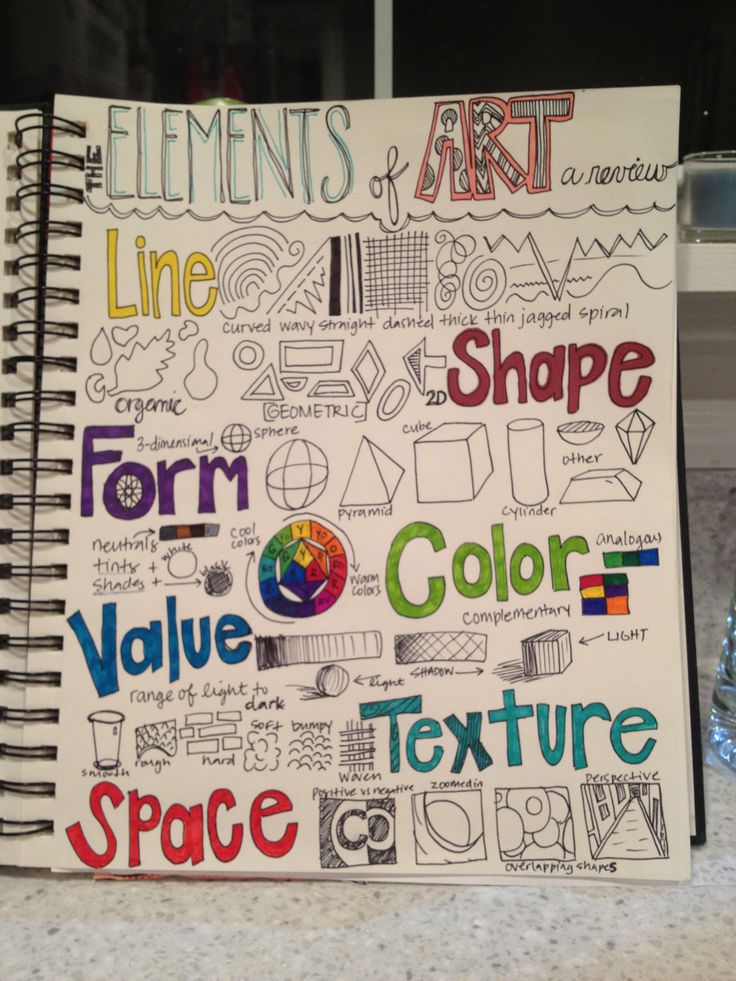 THE ELEMENTS of ART a review
Line
curved wavy straight dashed thick thin jagged spiral
Shape
2D
orgemic
[GEOMETRIC]
Form
3-dimensional
sphere
pyramid
cube
cylinder
other
Color
neutrals
tints + white
shades + black
cool colors
warm colors
analogous
complementary
Value
range of light to dark
light
SHADOW
LIGHT
Texture
smooth
rough
hard
soft
bumpy
woven
Space
Positive vs negative
zoomed in
overlapping shapes
perspective